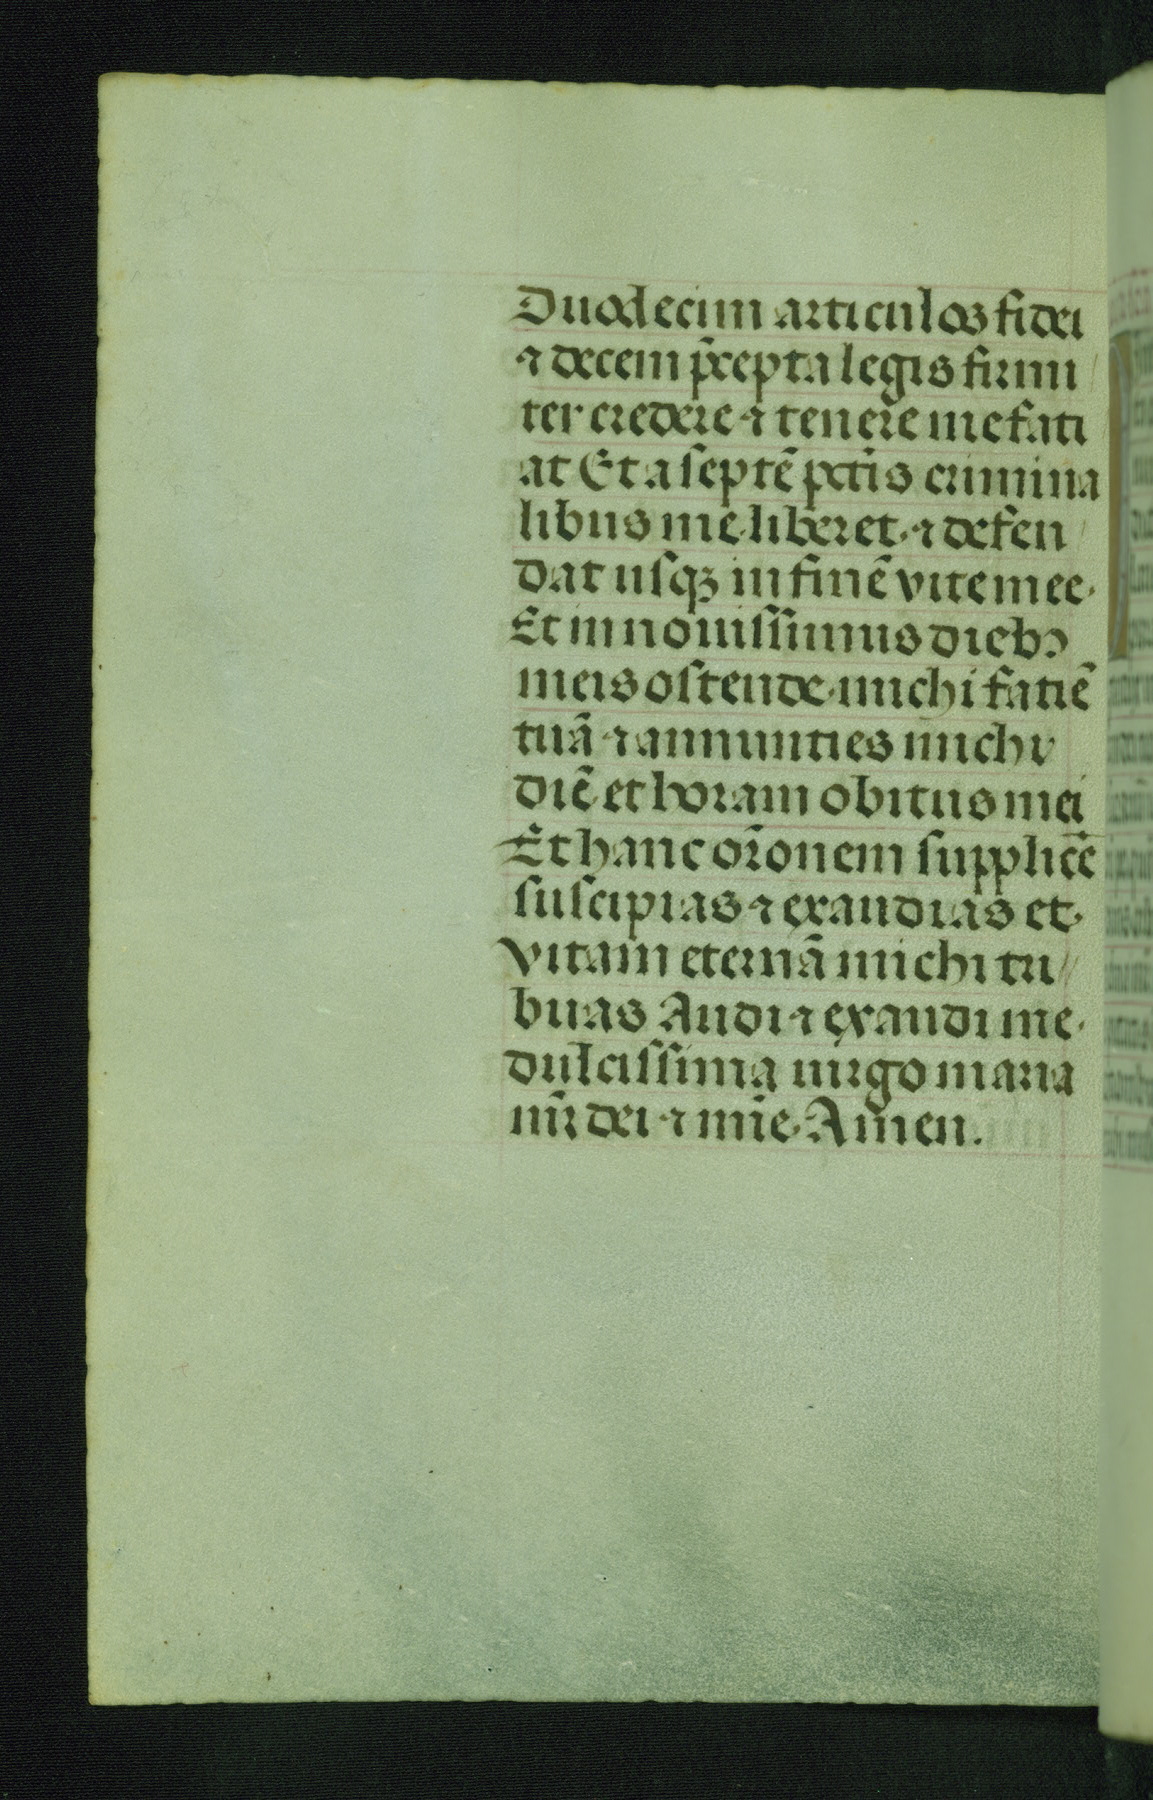 Duodecim articulos fidei
⁊ decem p̄cepta legis firmi
ter credere ⁊ tenere me fati
at Et a septē pctīs crimina
libus me liberet ⁊ defen
dat usqꝫ in finē vite mee
Et in nouissimis diebꝰ
meis ostende michi fatiē
tuā ⁊ annunties michi
diē et horam obitus mei
Et hanc orōnem supplicē
suscipias ⁊ exaudias et
vitam eternā michi tri
buas Audi ⁊ exaudi me
dulcissima uirgo maria
mr̄ dei ⁊ mīe Amen.